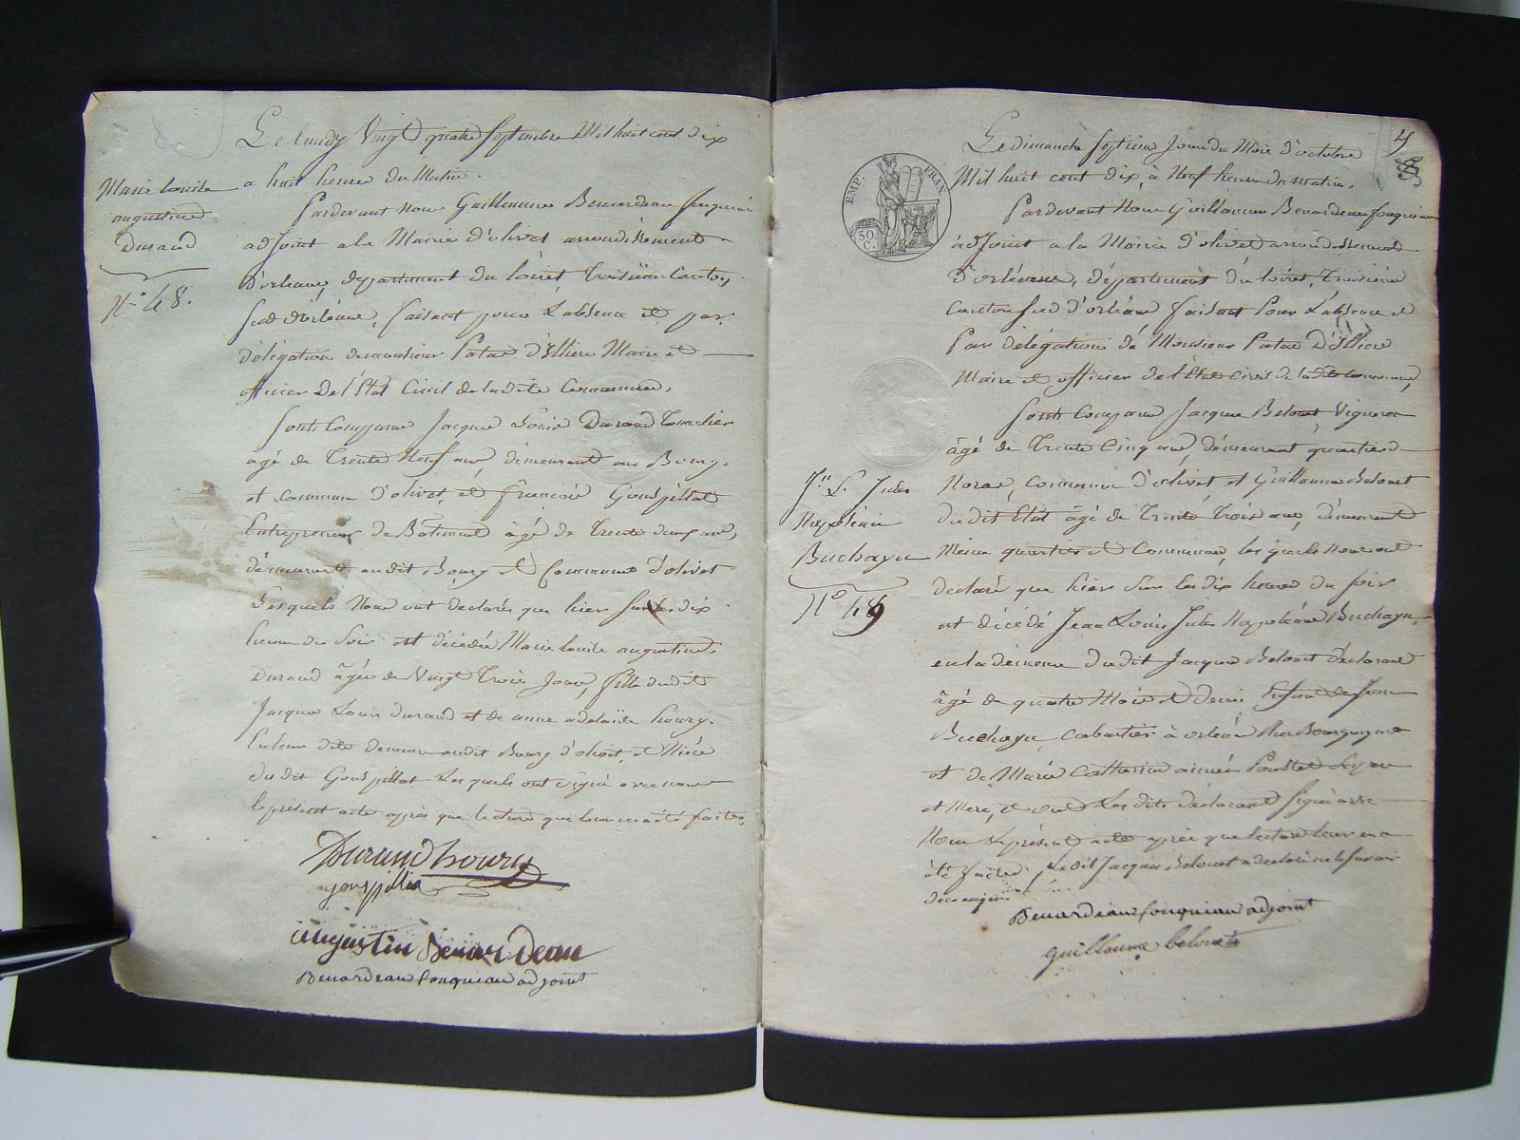 Le lundy Vingt quatre Septembre Mil huit cent dix
a huit heures du Matin.
Marie Louise
augustine
Durand
N.° 48.
Pardevant Nous Guillaume Benardeau fouqueau
adjoint a la Mairie d'olivet arrondissement
D'orleans, département du loiret, Troisieme Canton
Sud d'orléans, faisant pour L'absence et par
délégation de monsieur Patas d'Illiers Maire et
officier De l'État Civil de la dite Commune,
Sont Comparus Jacques Louis Durand Tonnelier
agé de Trente Neuf ans, demeurant au Bourg
et commune d'olivet, et françois Gouspillat
Entrepreneur de Batiment âgé de Trente deux ans,
démeurant audit Bourg et Commune d'olivet
Lesquels Nous ont declarés que hier sur les dix
heures du Soir est décédée Marie louise augustine
Durand âgée de Vingt Trois Jours, fille dudit
Jacques Louis durand et de anne adelaide houry.
En leur dite demeure audit Bourg d'olivet, et Niéce
du dit Gouspillat Lesquels ont signé avec nous
le présent acte après que lecture que leur en a été faite.
Durand houry
gouspillat
augustin Benardeau
Benardeau fouqueau adjoint
4
EMP. FRAN.
50 C.
Le dimanche Septieme Jour du Mois d'octobre
Mil huit cent dix, à Neuf heures du matin.
Pardevant Nous Guillaume Benardeau fouqueau
adjoint a la Mairie d'olivet arrondissement
D'orléans, département du loiret, Troisieme
Canton sud d'orléans faisant Pour L'absence et
Par délégation de Monsieur Patas D'illiers
Maire et officier de l'État Civil de la dite Commune,
Sont Comparus Jacques Belouet Vigneron
âgé de Trente Cinq ans, démeurant quartier
J.n L.s Jules
Napoléon
Buchayu
N.° 49
Noras, commune d'olivet et Guillaume Belouet
dudit État âgé de Trente Trois ans, démeurant
Même quartier et Commune, lesquels Nous ont
declaré que hier sur les dix heures du soir
est décédé Jean Louis Jules Napoléon Buchayu,
en la demeure du dit Jacques Belouet déclarant
âgé de quatre Mois et demi
Buchayu Cabartier à orléans Rue Bourgogne
et de Marie Catherine aimée
et Mere, et ont Les dits déclarant signé avec
Nous Le présent acte après que lecture leur en a
été faite. Ledit Jacques Belouet a declaré ne le savoir
Benardeau fouqueau adjoint
guillaume belouet